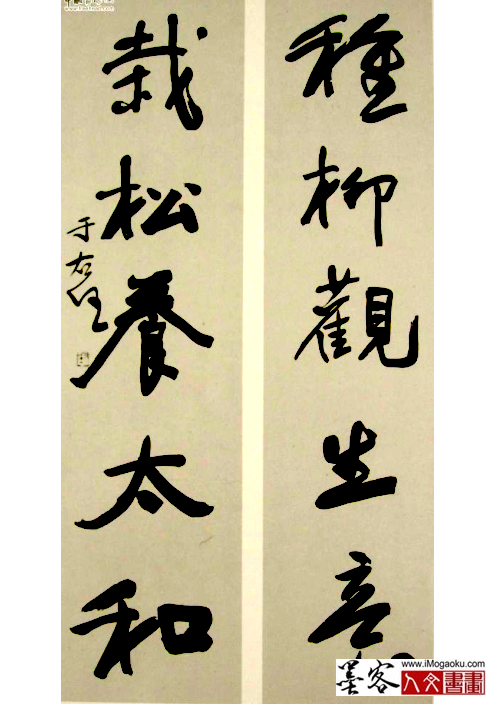 種柳觀生意
栽松養太和
于右任
www.iMogaoku.com
墨客
人文書畫